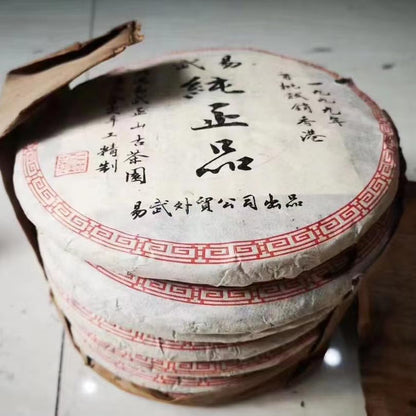 易武
純正品
一九九九年
首批銷香港
正山古茶園
手工精制
易武外貿公司出品